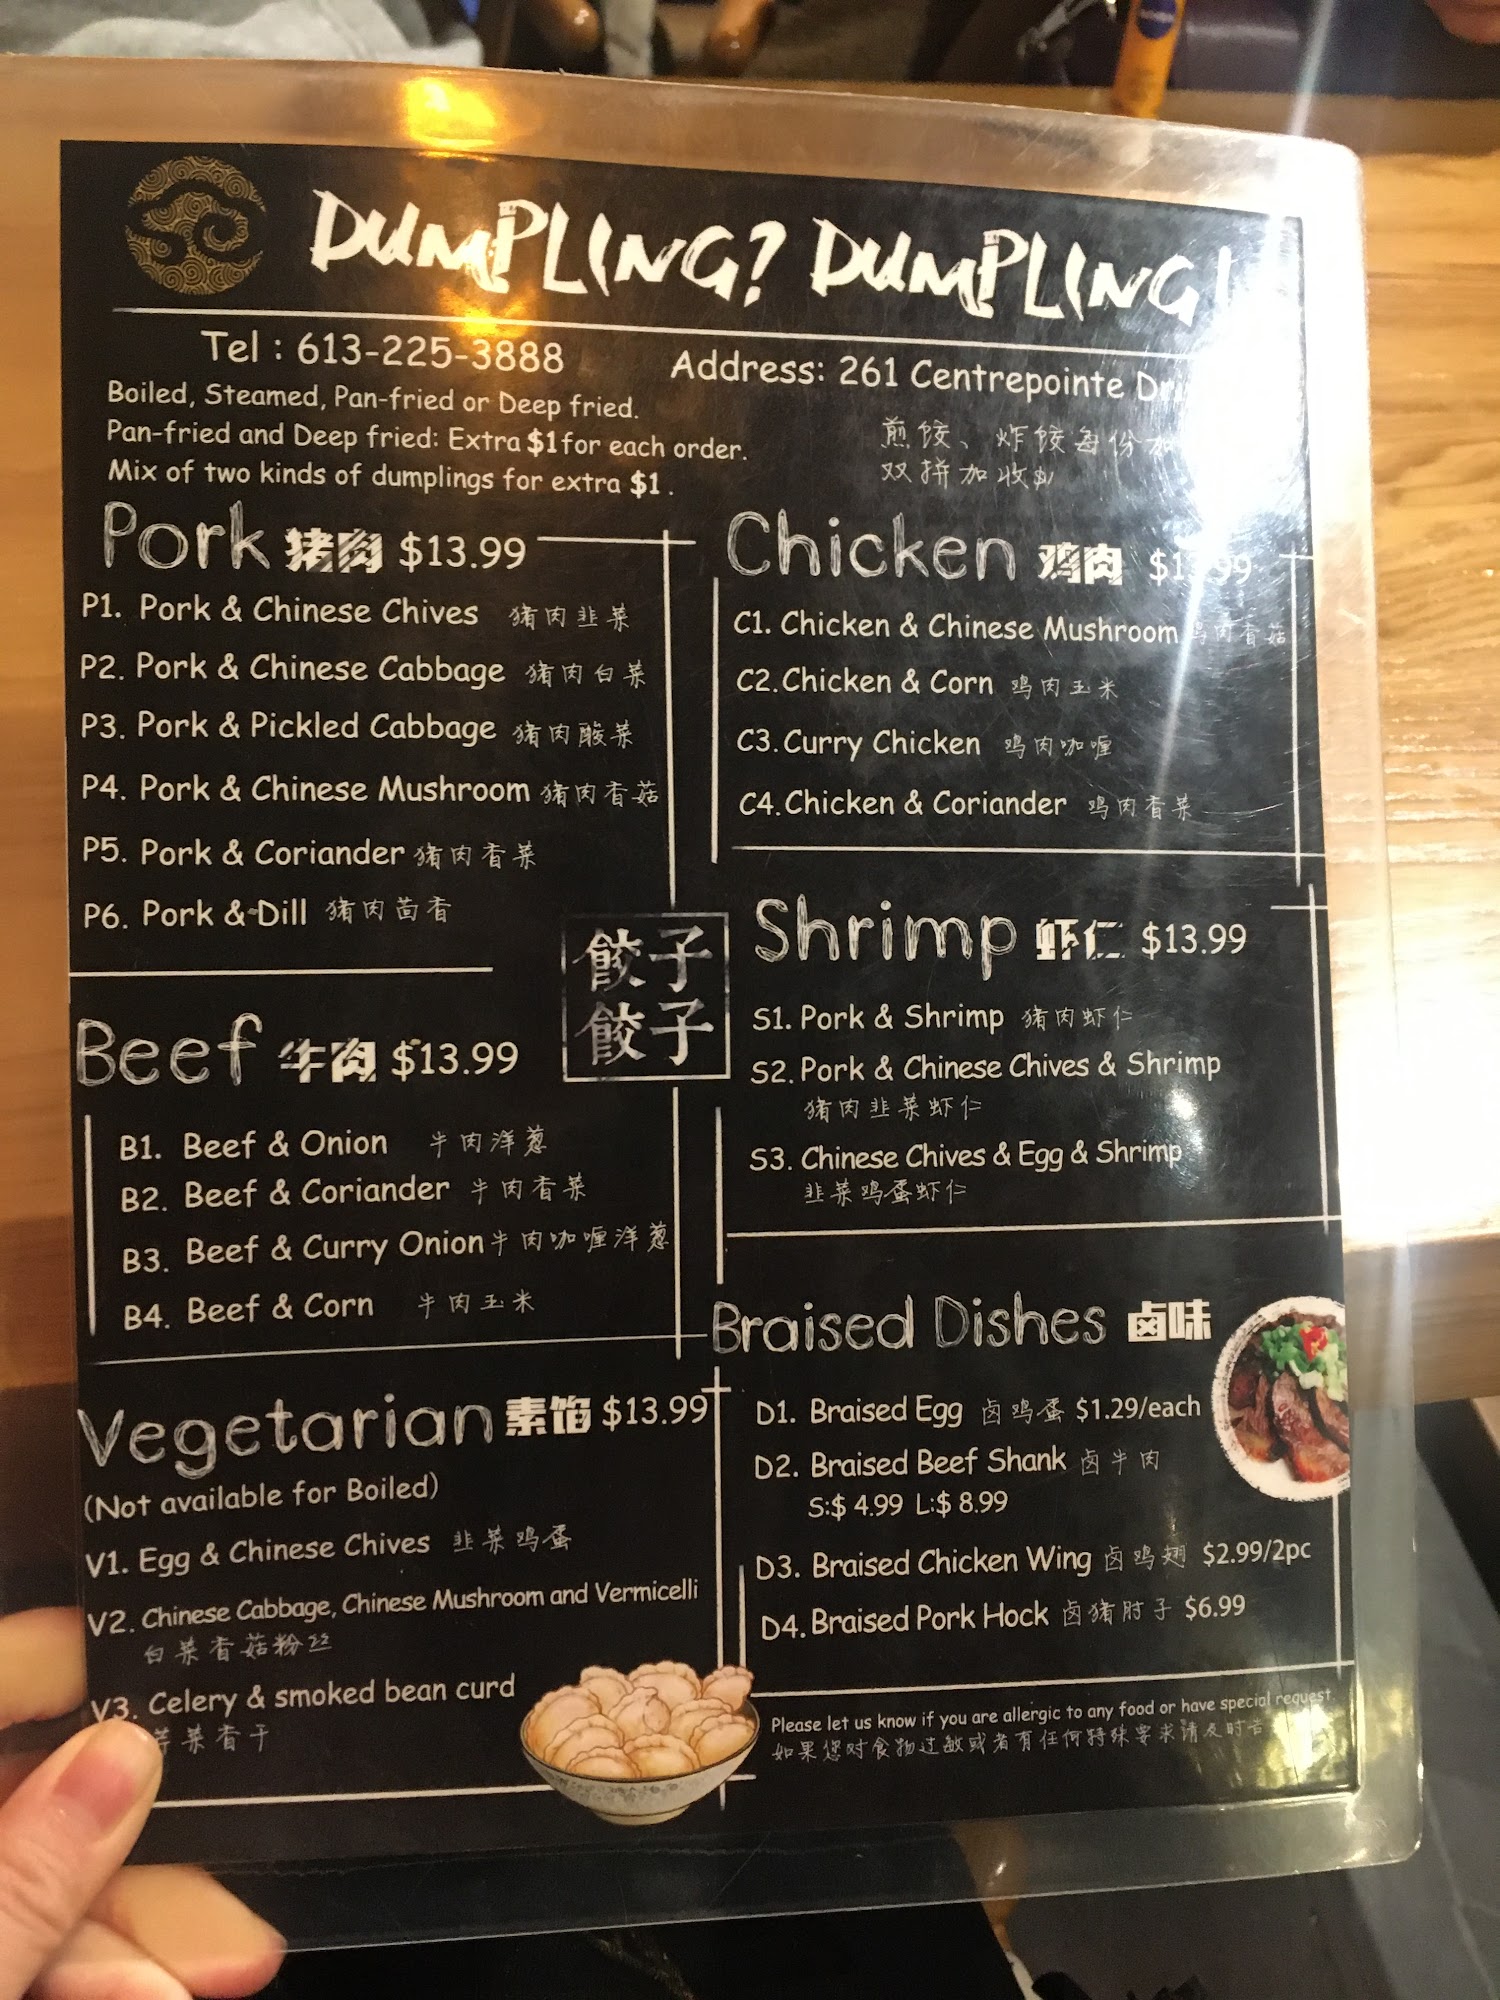 DUMPLING? DUMPLING!
Tel : 613-225-3888
Address: 261 Centrepointe
Boiled, Steamed, Pan-fried or Deep fried.
Pan-fried and Deep fried: Extra $1 for each order.
Mix of two kinds of dumplings for extra $1 .
煎饺、炸饺每份加
双拼加收$1
Pork 猪肉 $13.99
P1. Pork & Chinese Chives 猪肉韭菜
P2. Pork & Chinese Cabbage 猪肉白菜
P3. Pork & Pickled Cabbage 猪肉酸菜
P4. Pork & Chinese Mushroom 猪肉香菇
P5. Pork & Coriander 猪肉香菜
P6. Pork & Dill 猪肉茴香
Beef 牛肉 $13.99
B1. Beef & Onion 牛肉洋葱
B2. Beef & Coriander 牛肉香菜
B3. Beef & Curry Onion 牛肉咖喱洋葱
B4. Beef & Corn 牛肉玉米
Vegetarian 素馅 $13.99
(Not available for Boiled)
V1. Egg & Chinese Chives 韭菜鸡蛋
V2. Chinese Cabbage, Chinese Mushroom and Vermicelli
白菜香菇粉丝
V3. Celery & smoked bean curd
芹菜香干
餃子
餃子
Chicken 鸡肉
C1. Chicken & Chinese Mushroom 鸡肉香菇
C2. Chicken & Corn 鸡肉玉米
C3. Curry Chicken 鸡肉咖喱
C4. Chicken & Coriander 鸡肉香菜
Shrimp 虾仁 $13.99
S1. Pork & Shrimp 猪肉虾仁
S2. Pork & Chinese Chives & Shrimp
猪肉韭菜虾仁
S3. Chinese Chives & Egg & Shrimp
韭菜鸡蛋虾仁
Braised Dishes 卤味
D1. Braised Egg 卤鸡蛋 $1.29/each
D2. Braised Beef Shank 卤牛肉
S:$ 4.99 L:$ 8.99
D3. Braised Chicken Wing 卤鸡翅 $2.99/2pc
D4. Braised Pork Hock 卤猪肘子 $6.99
Please let us know if you are allergic to any food or have special request
如果您对食物过敏或者有任何特殊要求请及时告